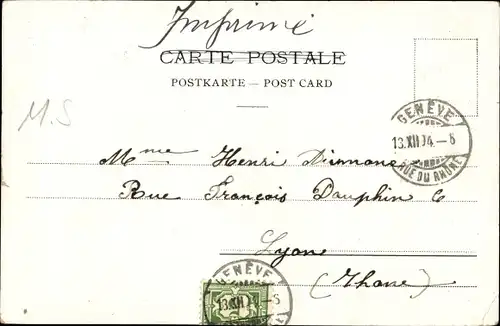 Imprimé
CARTE POSTALE
POSTKARTE — POST CARD
M.S
GENÈVE
13.XII 04.–6
RUE DU RHÔNE
Mme Henri
Rue François Dauphin 6
Lyone
(Rhone)
GENÈVE
13.XII 04.–6